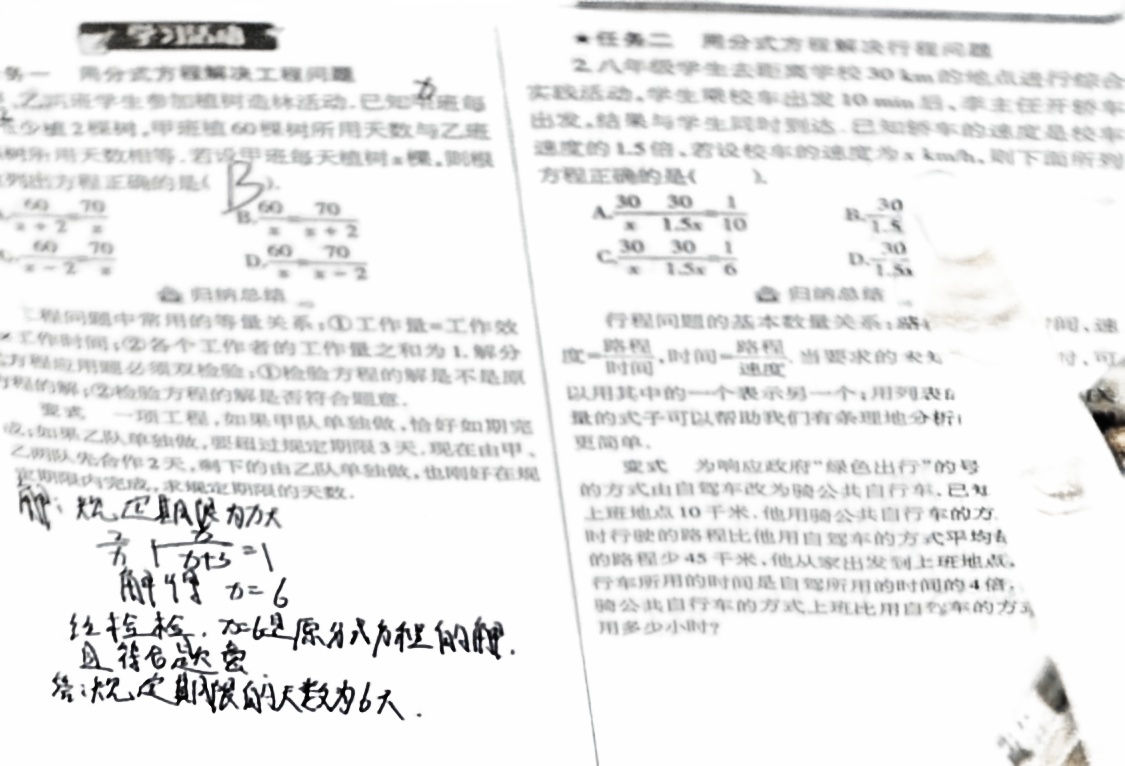 学习活动
务一 用分式方程解决工程问题
乙两班学生参加植树造林活动.已知甲班每
x
少植2棵树,甲班植60棵树所用天数与乙班
树所用天数相等.若设甲班每天植树x棵,则根
列出方程正确的是( B ).
60/(x+2)=70/x
B.60/x=70/(x+2)
60/(x-2)=70/x
D.60/x=70/(x-2)
归纳总结
程问题中常用的等量关系:①工作量=工作效
×工作时间;②各个工作者的工作量之和为1.解分
方程应用题必须双检验:①检验方程的解是不是原
方程的解;②检验方程的解是否符合题意.
变式 一项工程,如果甲队单独做,恰好如期完
成;如果乙队单独做,要超过规定期限3天.现在由甲、
乙两队先合作2天,剩下的由乙队单独做,也刚好在规
定期限内完成,求规定期限的天数.
解:规定期限为x天
2/x + x/(x+3) = 1
解得 x=6
经检检.x=6是原分式方程的解.
且符合题意
答:规定期限的天数为6天.
★任务二 用分式方程解决行程问题
2.八年级学生去距离学校30 km的地点进行综合
实践活动,学生乘校车出发10 min后,李主任开轿车
出发,结果与学生同时到达.已知轿车的速度是校车
速度的1.5倍,若设校车的速度为x km/h,则下面所列
方程正确的是( ).
A.30/x-30/1.5x=1/10
B.30/1.5
C.30/x-30/1.5x=1/6
D.30/1.5x
归纳总结
行程问题的基本数量关系:路 间,速
度=路程/时间,时间=路程/速度.当要求的 时,可
以用其中的一个表示另一个;用列表
量的式子可以帮助我们有条理地分析
更简单.
变式 为响应政府“绿色出行”的号
的方式由自驾车改为骑公共自行车.已知
上班地点10千米,他用骑公共自行车的方
时行驶的路程比他用自驾车的方式平均
的路程少45千米,他从家出发到上班地点,
行车所用的时间是自驾所用的时间的4倍,
骑公共自行车的方式上班比用自驾车的方式
用多少小时?